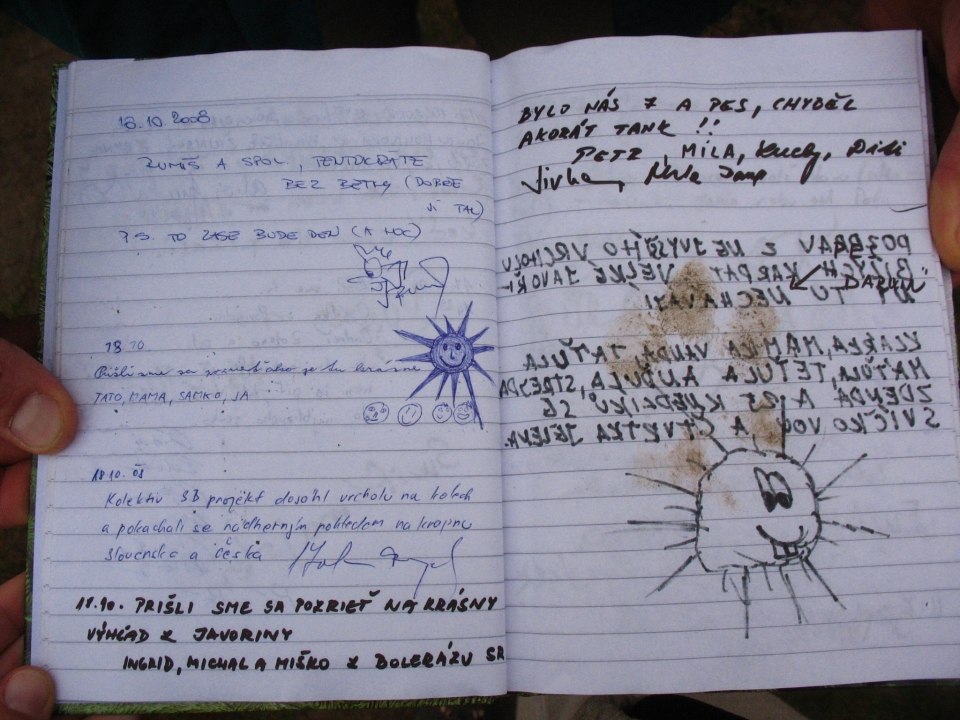 18.10.2008
RUMIŠ A SPOL., TENTOKRÁTE
BEZ BĚTKY (DOBŘE
JÍ TAK)
P.S. TO ZASE BUDE DEN (A NOC)
18.10
Prišli sme sa
TATO, MAMA, SAMKO, JA
18.10. 08
Kolektiv SB projekt dosáhl vrcholu na kolech
a pokochali se nádherným pohledem na krajinu
Slovenska a česka
18.10. PRIŠLI SME SA POZRIEŤ NA KRÁSNY
VÝHĽAD Z JAVORINY
INGRID, MICHAL A MIŠKO Z BOLERÁZU SR
BYLO NÁS 7 A PES, CHYBĚL
AKORÁT TANK !!
PETR, MÍLA,
Jivka,
POZDRAV Z NEJVYŠŠÍHO VRCHOLU
BÍLÝCH KARPAT VELKÉ JAVOŘI-
NY TU NECHÁVAJÍ DAPUM
KLÁRKA, MAMKA VANDA, TAŤULA
MATŮLA, TETULA ANDULA, STREJDA
ZDENDA A PES KNEDLÍKŮ SE
SVÍČKOVOU A ČTVRTKA JELENA.